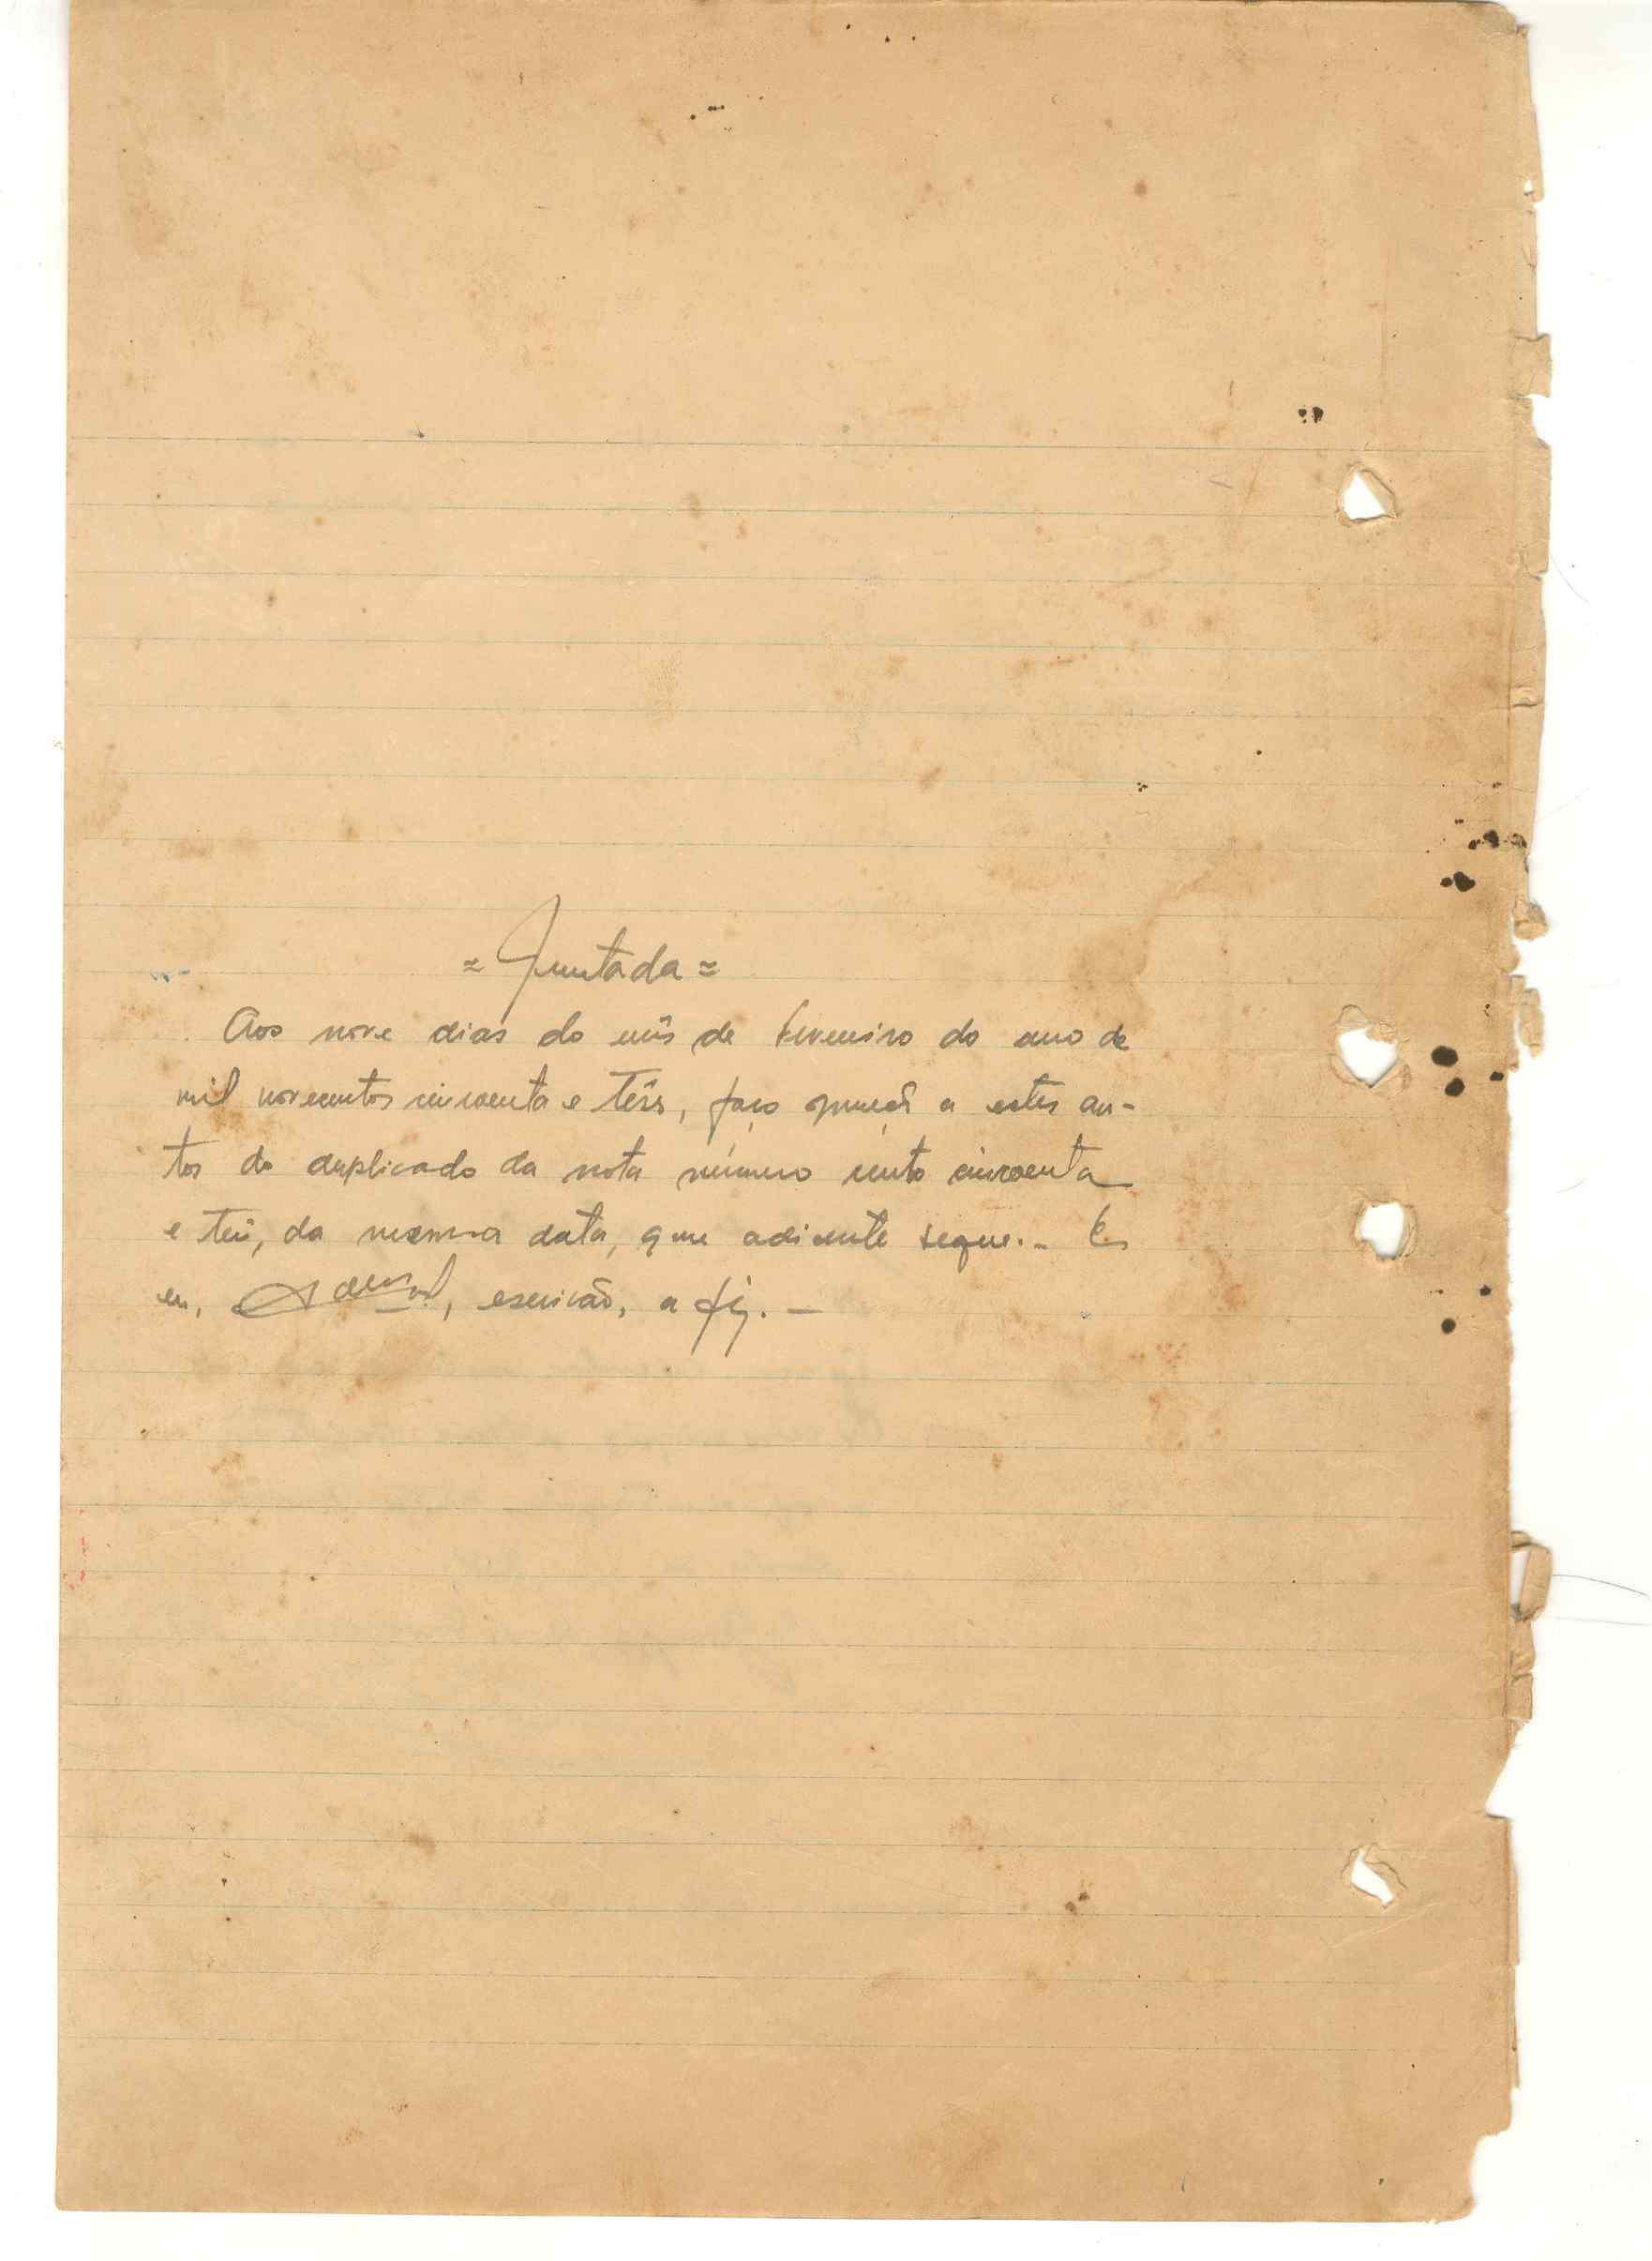 = Juntada =
Aos nove dias do mês de Fevereiro do ano de
mil novecentos cincoenta e três, faço a estes au-
tos do duplicado da nota número cento cincoenta
e três, da mesma data, que adiante segue. - E
eu, , escrivão, a fiz. -